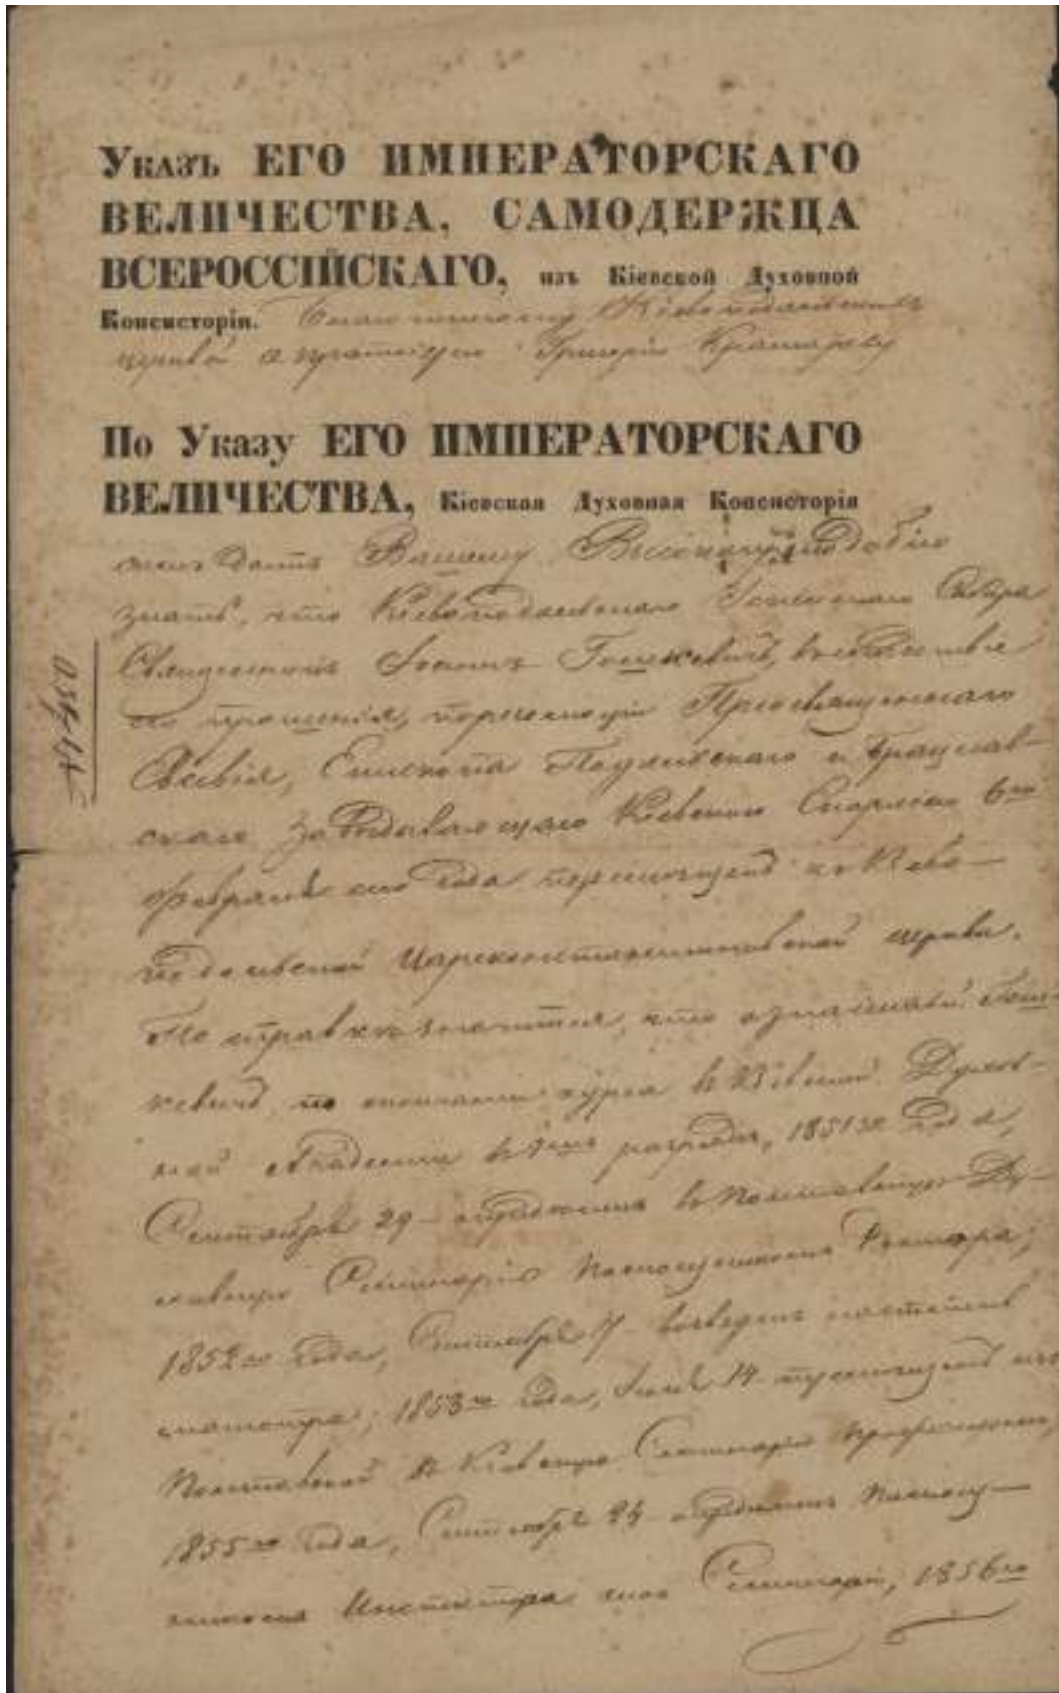 Указъ ЕГО ИМПЕРАТОРСКАГО
ВЕЛИЧЕСТВА, САМОДЕРЖЦА
ВСЕРОССІЙСКАГО, изъ Кіевской Духовной
Консисторіи. Кіевоподольскихъ
церквей Григорію
По Указу ЕГО ИМПЕРАТОРСКАГО
ВЕЛИЧЕСТВА, Кіевская Духовная Консисторія
симъ даетъ Вашему Высокопреподобію
знать, что Кіевоподольскаго Успенскаго Собора
Священникъ Іоаннъ Гошкевичъ, вслѣдствіе
его прошенія, резолюціи Преосвященнаго
Евсевія, Епископа Подольскаго и Брацлав-
скаго завѣдывающаго Кіевскою Епархіею 6го
февраля сего года перемѣщенъ къ Кіево-
подольской Цареконстантиновской церкви.
По справкѣ значится, что означенный Гош-
кевичъ, по окончаніи курса въ Кіевской Духов-
ной Академіи въ разрядѣ, 1851го года,
Сентября 29 опредѣленъ въ Полтавскую Ду-
ховную Семинарію Помощникомъ Ректора;
1852го года, Сентября 7 возведенъ на степень
магистра; 1853го года, 14 перемѣщенъ изъ
Полтавской въ Кіевскую Семинарію профессоромъ,
1855го года, Сентября 24 опредѣленъ Помощ-
никомъ Инспектора сей Семинаріи, 1856го